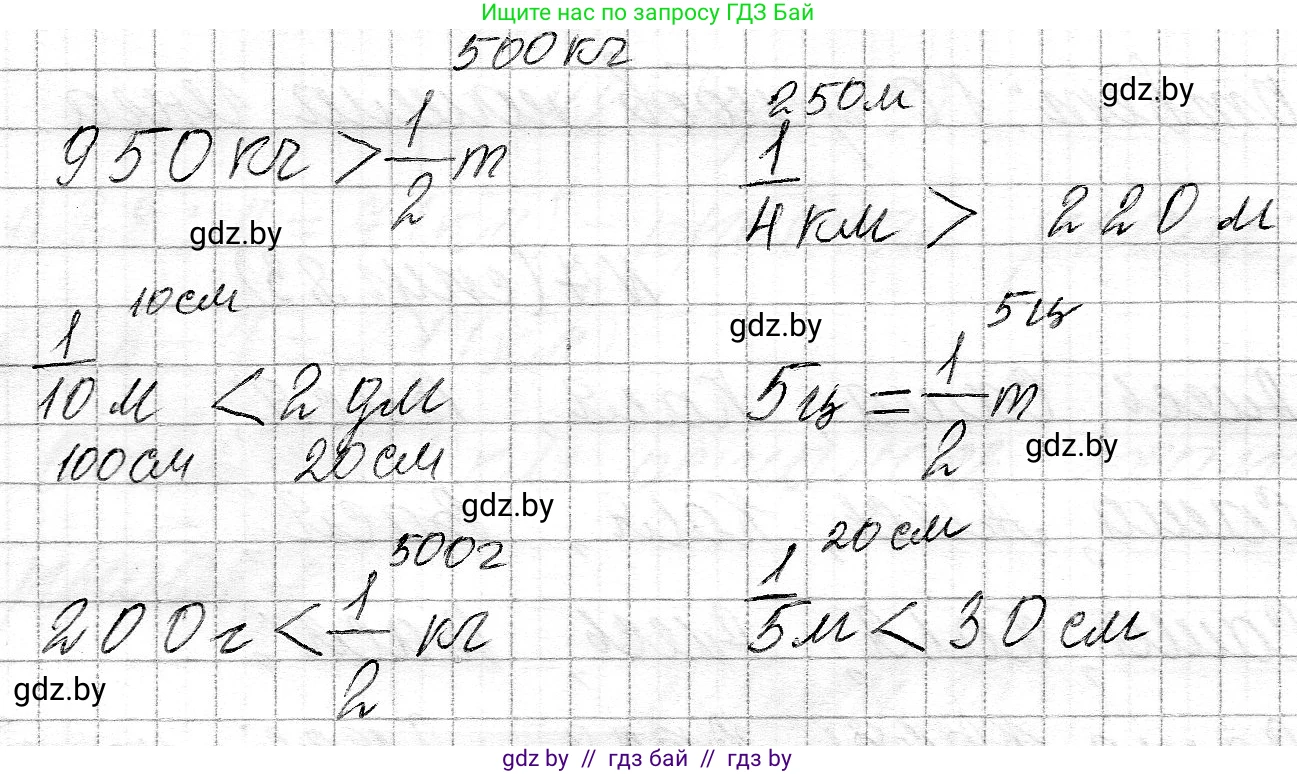 Ищите нас по запросу ГДЗ Бай
500кг
950кг > 1/2 т
gdz.by
250м
gdz.by
1/4 км > 220 м
10см
1/10 м < 2 дм
100см 20см
gdz.by
5ц
5ц = 1/2 т
gdz.by
gdz.by
500г
200г < 1/2 кг
gdz.by
20см
1/5 м < 30 см
gdz.by // гдз бай // гдз by